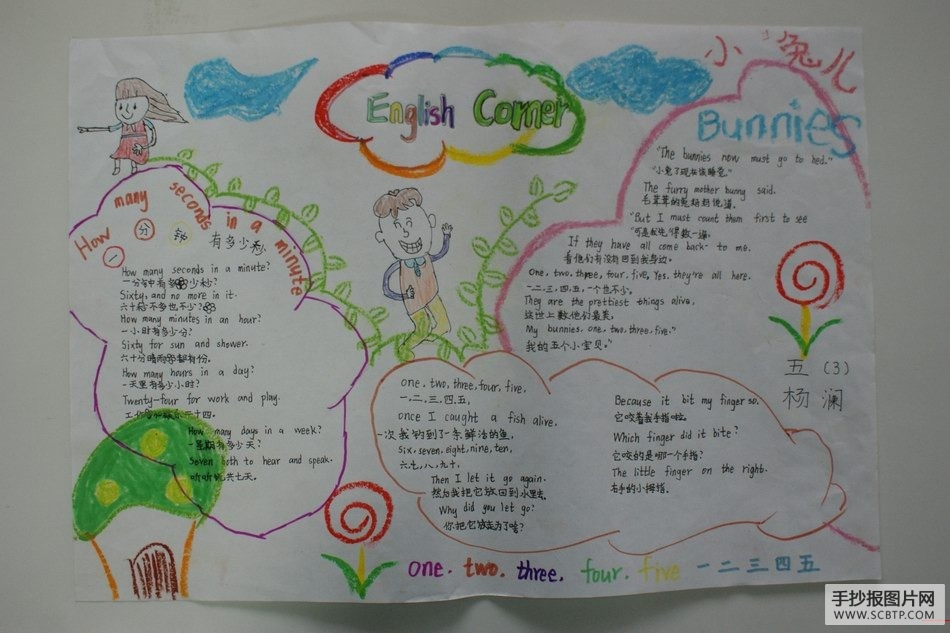 English Corner
小兔儿
Bunnies
How many seconds in a minute
一分钟有多少秒
How many seconds in a minute?
一分钟有多少秒?
Sixty, and no more in it.
六十秒不多也不少?
How many minutes in an hour?
一小时有多少分?
Sixty for sun and shower.
六十分晴雨都有份。
How many hours in a day?
一天里有多少小时?
Twenty-four for work and play.
二十四。
How many days in a week?
一星期有多少天?
Seven both to hear and speak.
听听说共七天。
"The bunnies now must go to bed."
"小兔子现在该睡觉。"
The furry mother bunny said.
毛茸茸的兔妈妈说道。
"But I must count them first to see
"可是我先得数一遍
If they have all come back to me.
看他们有没有回到我身边。
One, two, three, four, five, Yes, they're all here.
一.二.三.四.五,一个也不少。
They are the prettiest things alive,
这世上数他们最美。
My bunnies, one, two, three, five."
我的五个小宝贝。"
五 (3)
杨 澜
One, two, three, four, five,
一.二.三.四.五,
Once I caught a fish alive,
一次我钓到了一条鲜活的鱼,
Six, seven, eight, nine, ten,
六,七,八,九,十,
Then I let it go again.
然后我把它放回到水里去。
Why did you let go?
你把它放走为了啥?
Because it bit my finger so,
它咬着我手指啦。
Which finger did it bite?
它咬的是哪一个手指?
The little finger on the right.
右手的小拇指。
one. two. three. four. five 一二三四五
手抄报图片网
WWW.SCBTP.COM